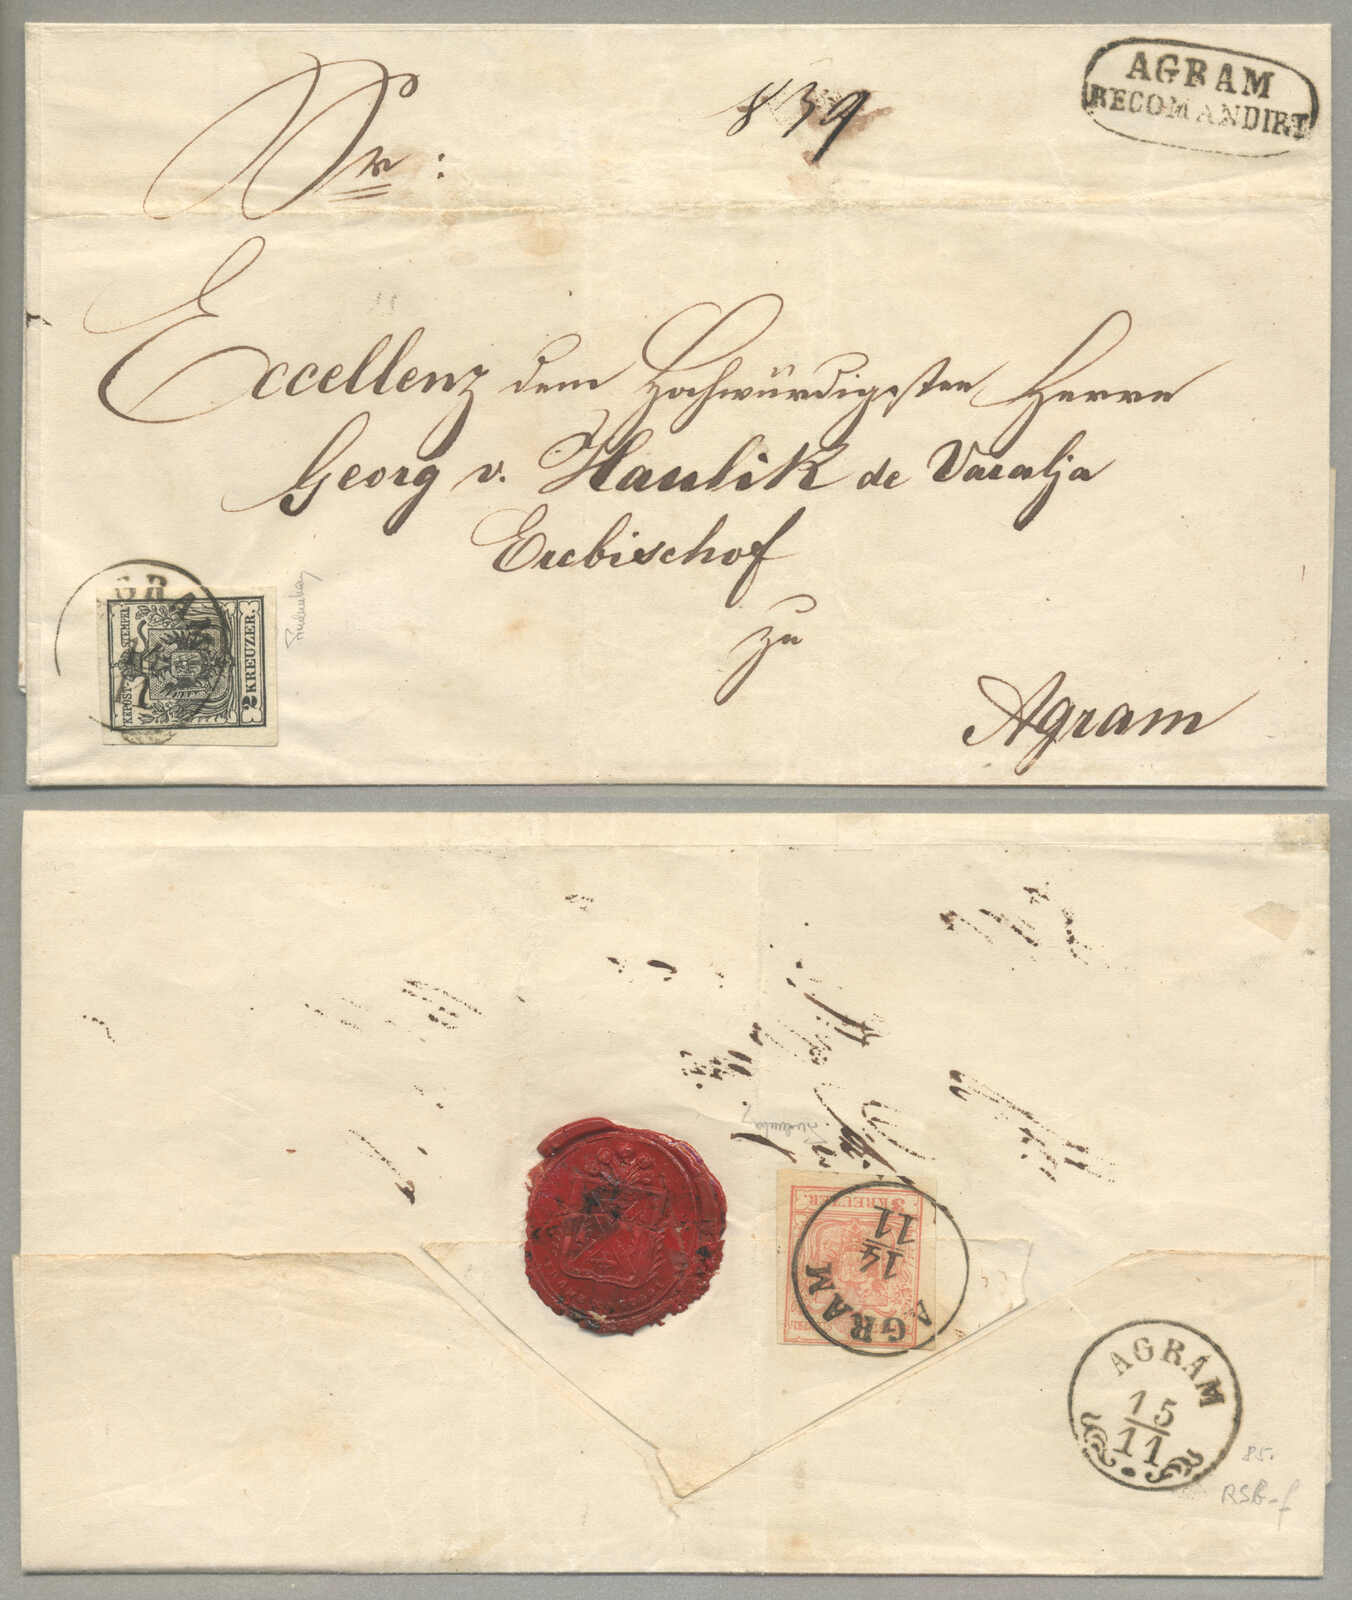 AGRAM
RECOMANDIRT
839
Sr:
Excellenz dem Hochwürdigsten Herrn
Georg v. Haulik de Varalja
Erzbischof
zu
Agram
AGRAM
KK POST-STEMPEL
2 KREUZER.
3 KREUZER.
AGRAM
14
11
AGRAM
15
11
85.
RSB-f